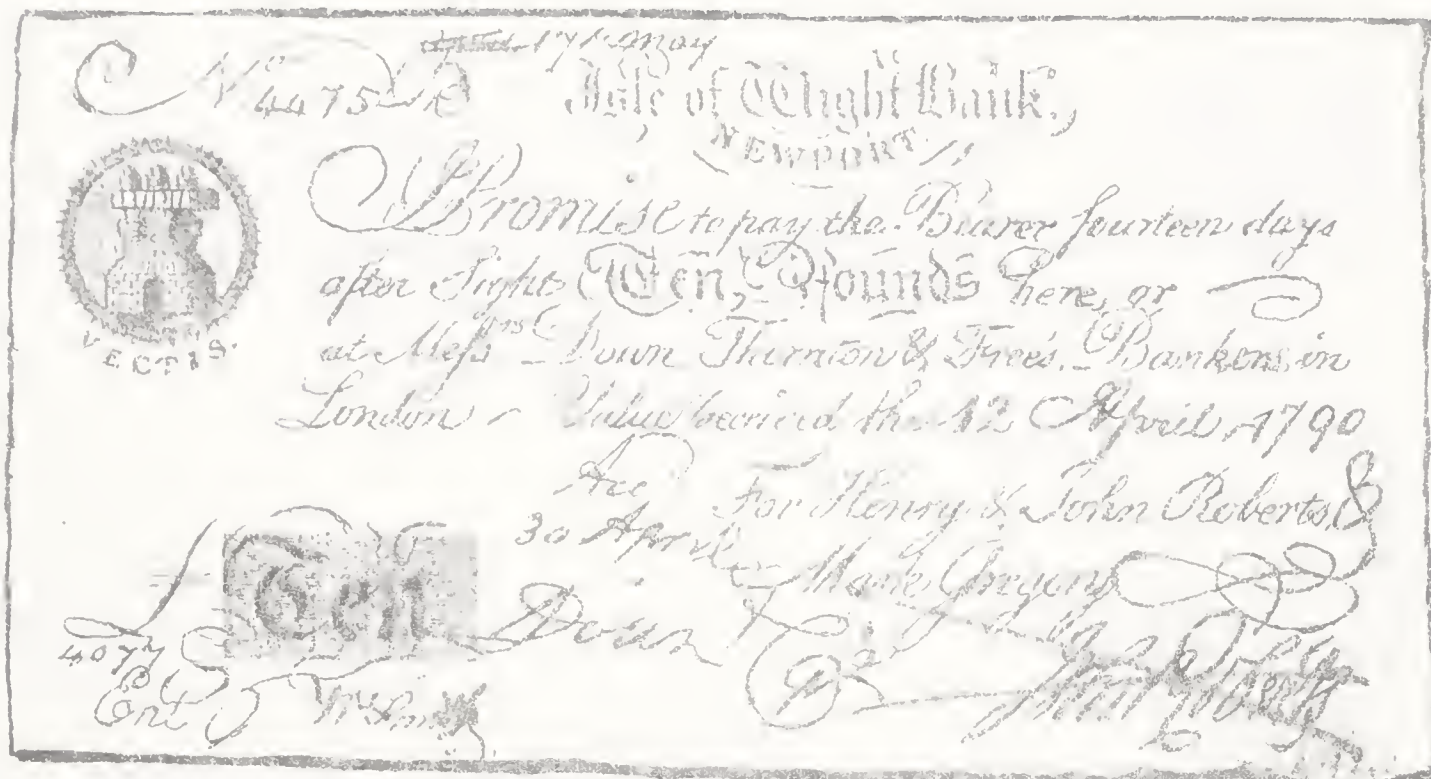 17 May
No 4475
Isle of Wight Bank,
NEWPORT
VECTIS
I Promise to pay the Bearer fourteen days
after Sight Ten Pounds here, or
at Messrs Down Thornton & Free's, Bankers in
London Value received the 12 April 1790
Acc
30 April
For Henry & John Roberts &
Mark Gregory
Ten
Down
4077
Ent